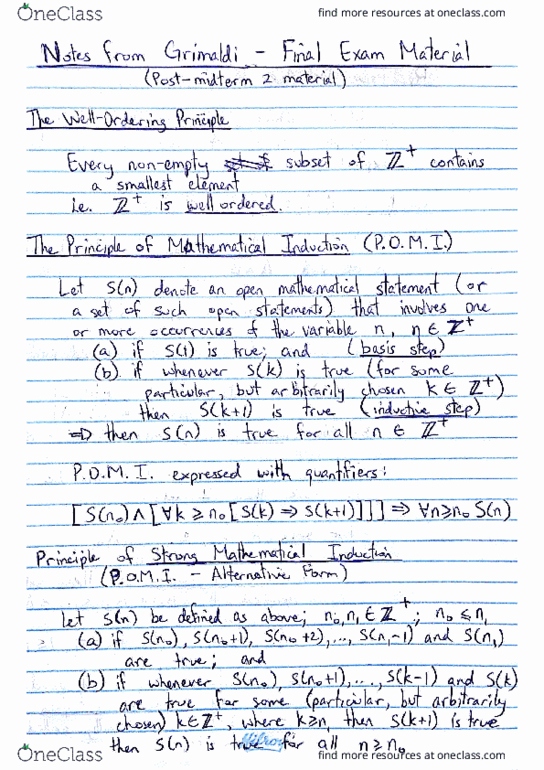 OneClass
find more resources at oneclass.com
Notes from Grimaldi - Final Exam Material
(Post-midterm 2 material)
The Well-Ordering Principle
Every non-empty subset of ℤ⁺ contains
a smallest element
i.e. ℤ⁺ is well ordered.
The Principle of Mathematical Induction (P.O.M.I.)
Let S(n) denote an open mathematical statement (or
a set of such open statements) that involves one
or more occurrences of the variable n, n ∈ ℤ⁺
(a) if S(1) is true; and (basis step)
(b) if whenever S(k) is true (for some
particular, but arbitrarily chosen k ∈ ℤ⁺)
then S(k+1) is true (inductive step)
⇒ then S(n) is true for all n ∈ ℤ⁺
P.O.M.I. expressed with quantifiers:
[S(n₀) ∧ [∀k ≥ n₀ [S(k) ⇒ S(k+1)]]] ⇒ ∀n≥n₀ S(n)
Principle of Strong Mathematical Induction
(P.O.M.I. - Alternative Form)
Let S(n) be defined as above; n₀, n₁ ∈ ℤ⁺; n₀ ≤ n₁
(a) if S(n₀), S(n₀+1), S(n₀+2), ..., S(n₁-1) and S(n₁)
are true; and
(b) if whenever S(n₀), S(n₀+1), ..., S(k-1) and S(k)
are true for some (particular, but arbitrarily
chosen) k∈ℤ⁺, where k≥n₁ then S(k+1) is true
then S(n) is true for all n≥n₀
OneClass
find more resources at oneclass.com